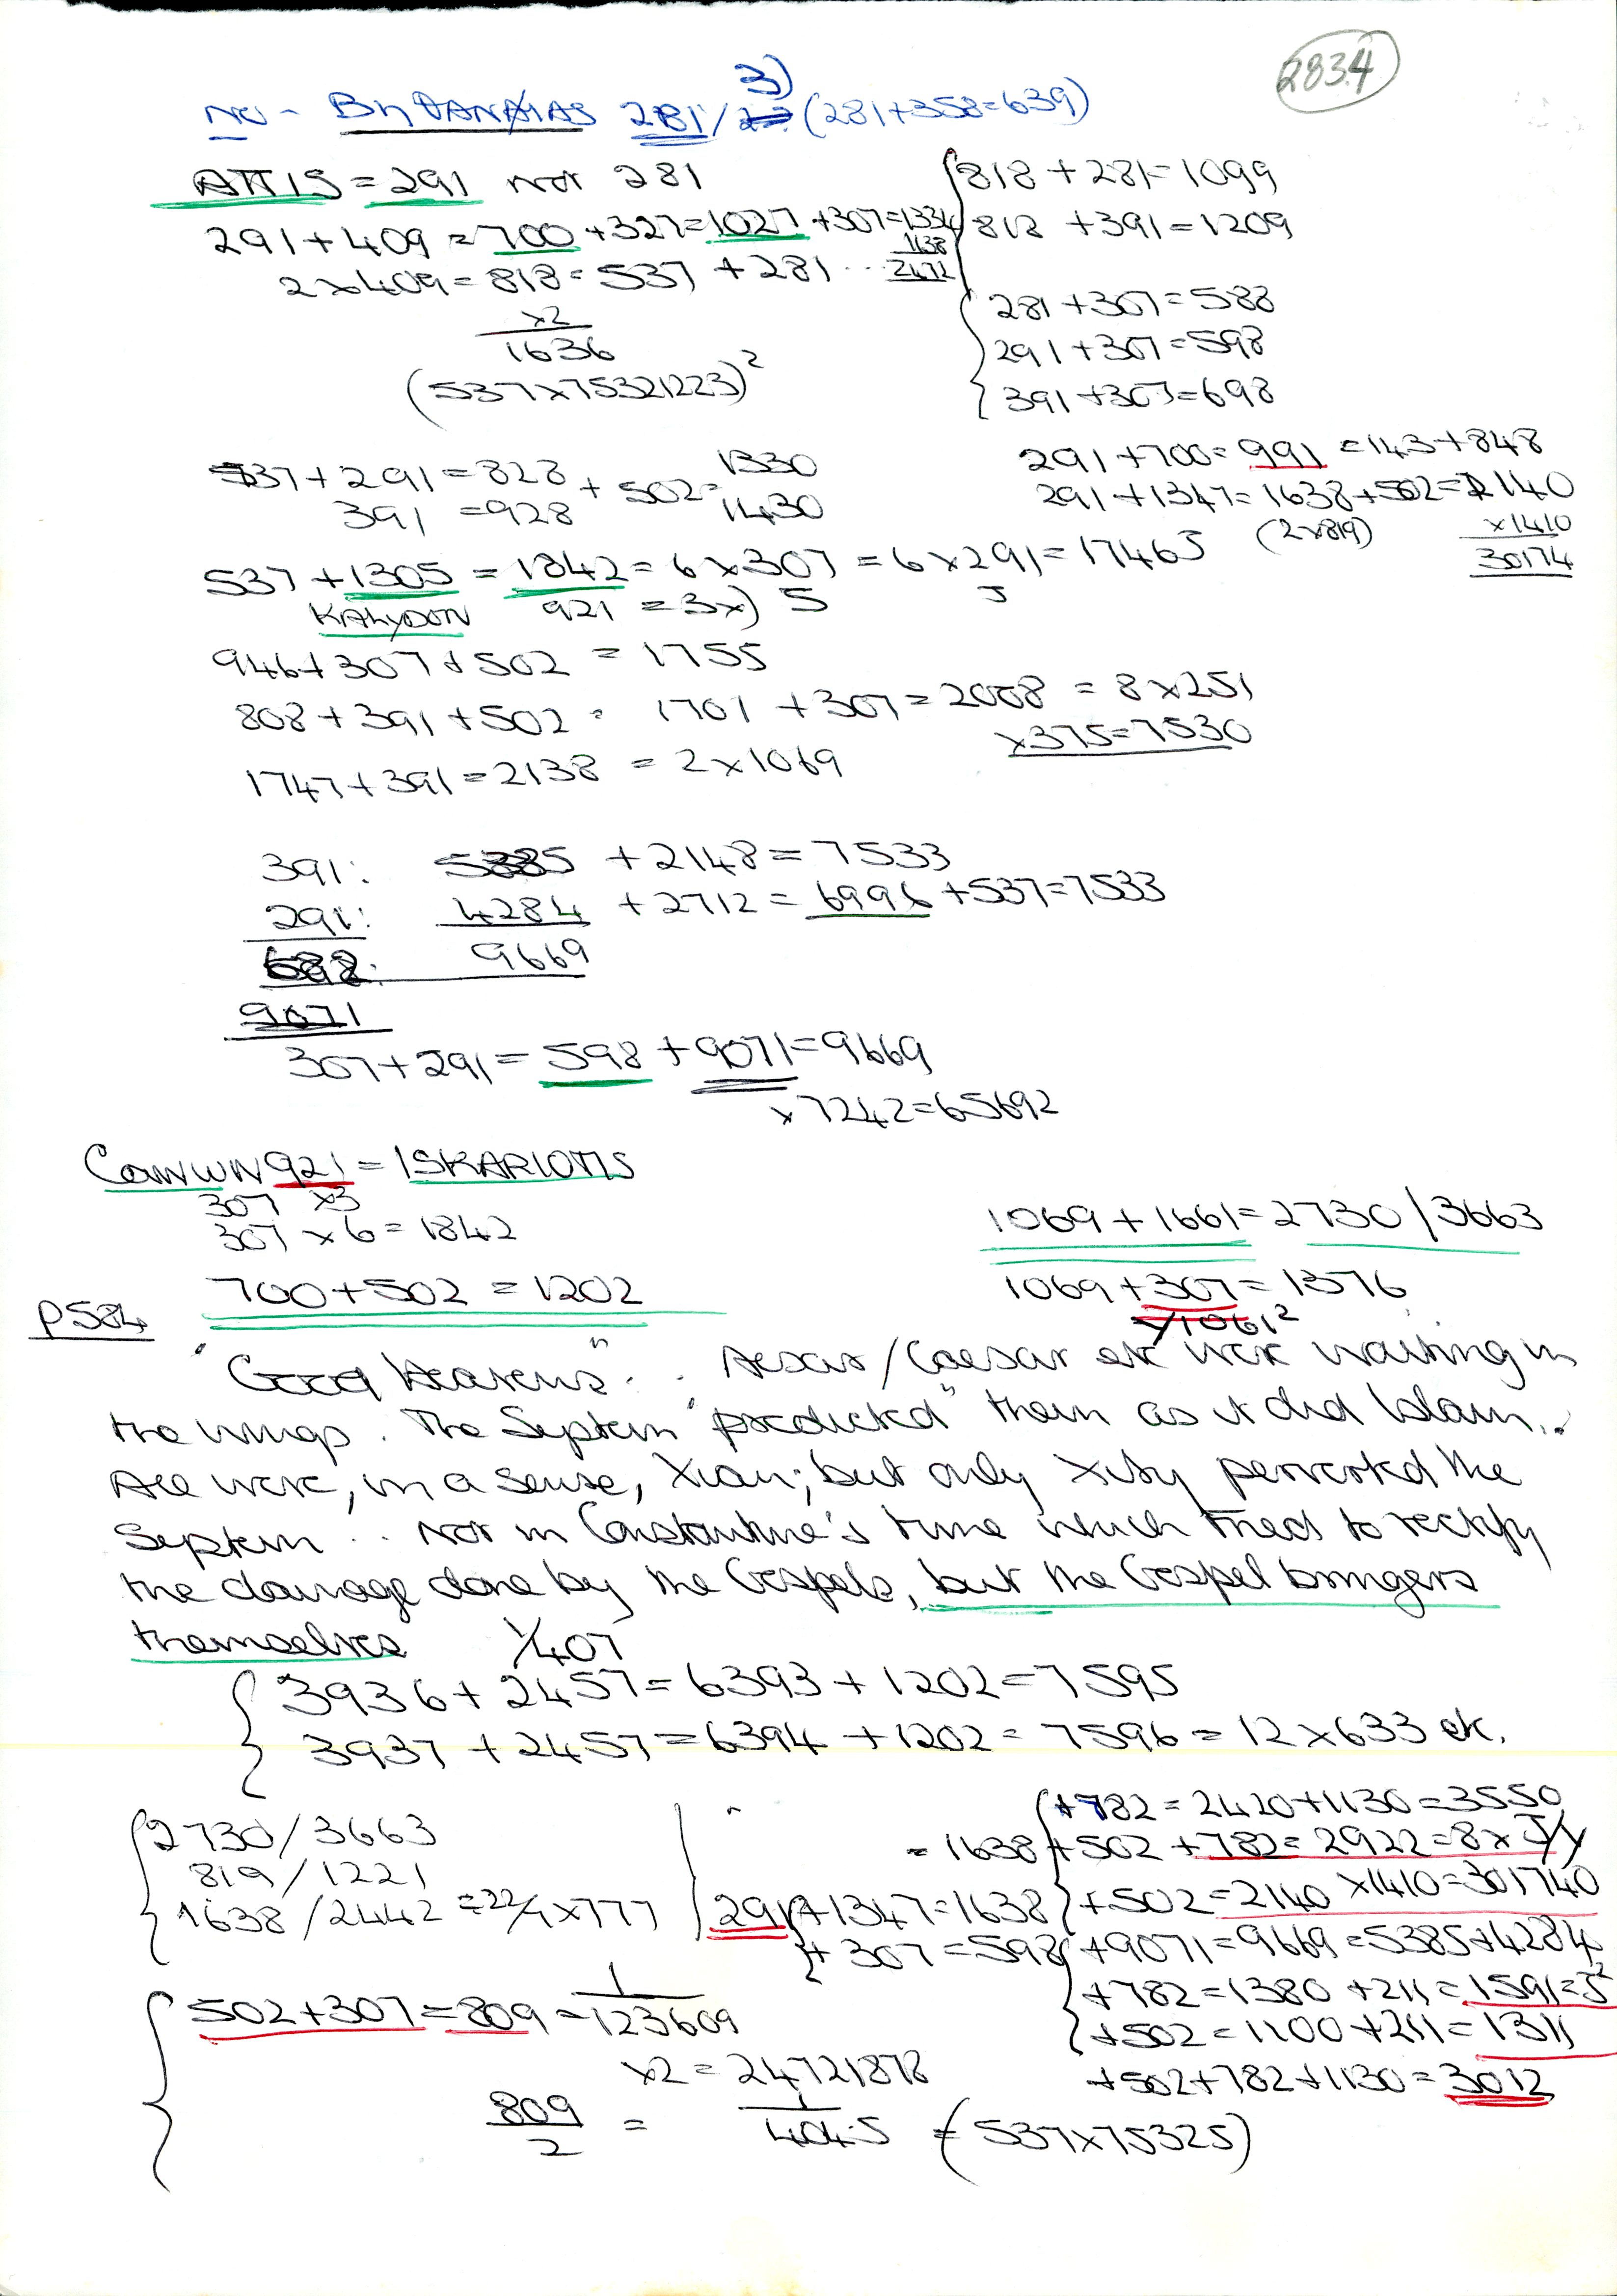 2834
3)
NO - BhTANAIAS 281/ (281+358=639)
ATTIS = 291 not 281
291+409=700+327=1027+307=1334
1638
2472
2x409=818=537+281..
x2
1636
(537x75321223)²
818+281=1099
818+391=1209
281+307=588
291+307=598
391+307=698
537+291=828
391=928
+502=
1330
1430
291+700=991=143+848
291+1347=1638+502=2140
(2x819)
x1410
30174
537+1305=1842=6x307=6x291=17465
KALYDON
921=3x) 5
5
946+307+502=1755
808+391+502=1701+307=2008=8x251
x375=7530
1747+391=2138=2x1069
391: 5385+2148=7533
291: 4284+2712=6996+537=7533
682: 9669
9071
307+291=598+9071=9669
x7242=65692
921=ISKARIOTIS
307 x3
307x6=1842
1069+1661=2730/3663
700+502=1202
1069+307=1376
x1061²
P584
"Good Heavens".. Aesar/Caesar etc were waiting in
the wings. The System "predicted" them as it did Islam..
All were, in a sense, Xian; but only Xity perverted the
System.. Not in Constantine's time which tried to rectify
the damage done by the Gospels, but the Gospel bringers
themselves 1/407
3936+2457=6393+1202=7595
3937+2457=6394+1202=7596=12x633 etc.
2730/3663
819/1221
1638/2442=22/7x777
=1638
+782=2420+1130=3550
+502+782=2922=8xJ/Y
291+1347=1638
+502=2140x1410=301740
+307=598
+9071=9669=5385+4284
+782=1380+211=1591=J²
+502=1100+211=1311
+502+782+1130=3012
502+307=809=1/123609
x2=24721878
809/2=1/404.5=(537x75325)